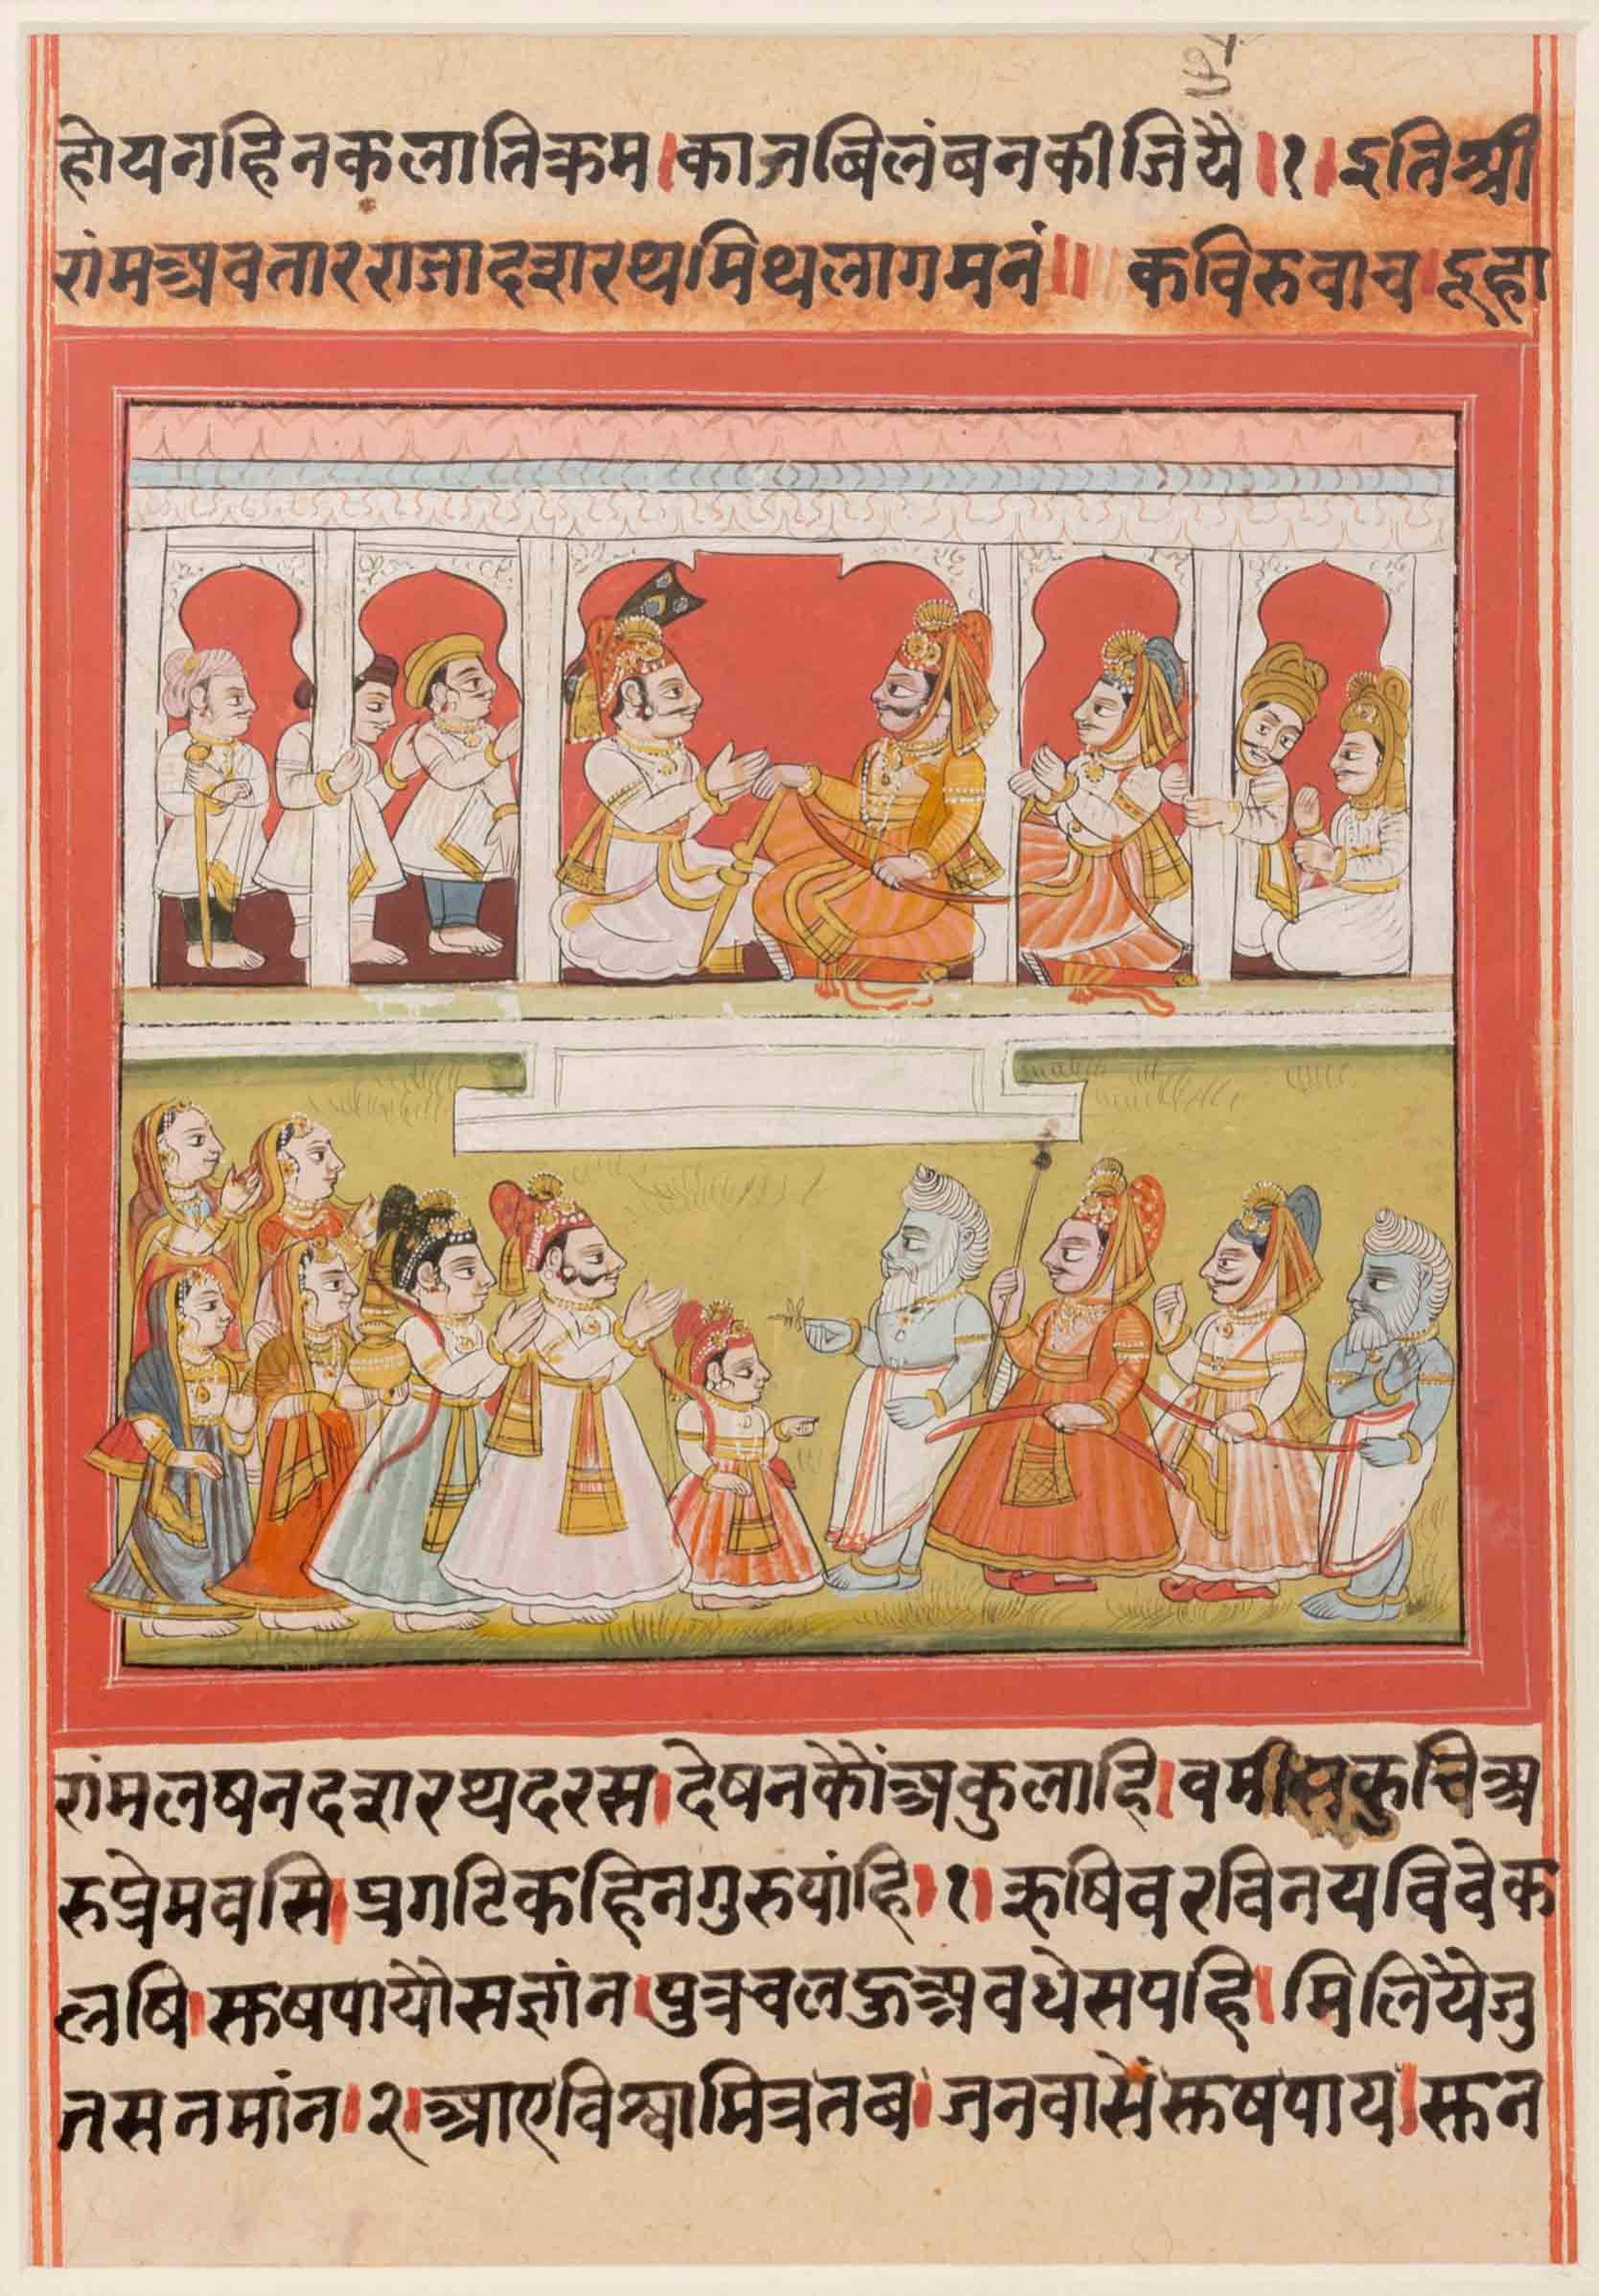 होयनहिनकलातिक्रम।काजबिलंबनकीजिये।१।इतिश्री
रांमअवतारराजादशरथमिथलागमनं॥ कविरुवाच।दूहा
रांमलषनदशरथदरस।देषनकौंअकुलांहि।वर्मीसकुचिअ
रुप्रेमवसि।प्रगटिकहिनगुरुपांहि।१।ऋषिवरविनयविवेक
लषि।सुषपायौसज्ञांन।पुत्रचलहुअवधेसपहि।मिलियैजु
तसनमांन।२।आएविश्वामित्रतब।जनवासेंसुषपाय।सुन